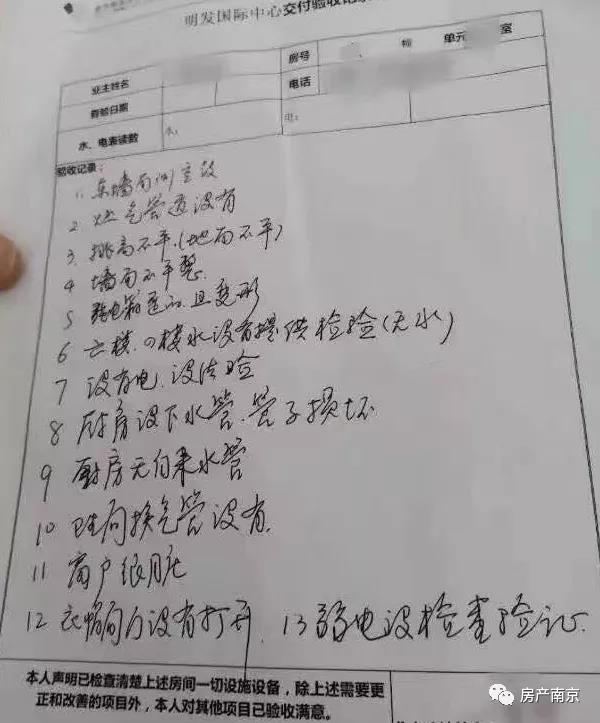 明发国际中心交付验收记录
业主姓名
房号
幢
单元
室
查验日期
电话
水、电表读数
水:
电:
验收记录:
1
2 燃气管道没有
3. 挑高不平.(地面不平)
4 墙面不平整.
5 弱电箱 且变形
6 楼水没有提供检验(无水)
7 没有电.没法验
8 厨房没下水管.管子损坏
9 厨房无自来水管
10 卫生间换气管没有.
11 窗户很脏
12 衣帽间门没有打开. 13弱电没检查验证.
本人声明已检查清楚上述房间一切设施设备，除上述需要更
正和改善的项目外，本人对其他项目已验收满意。
房产南京